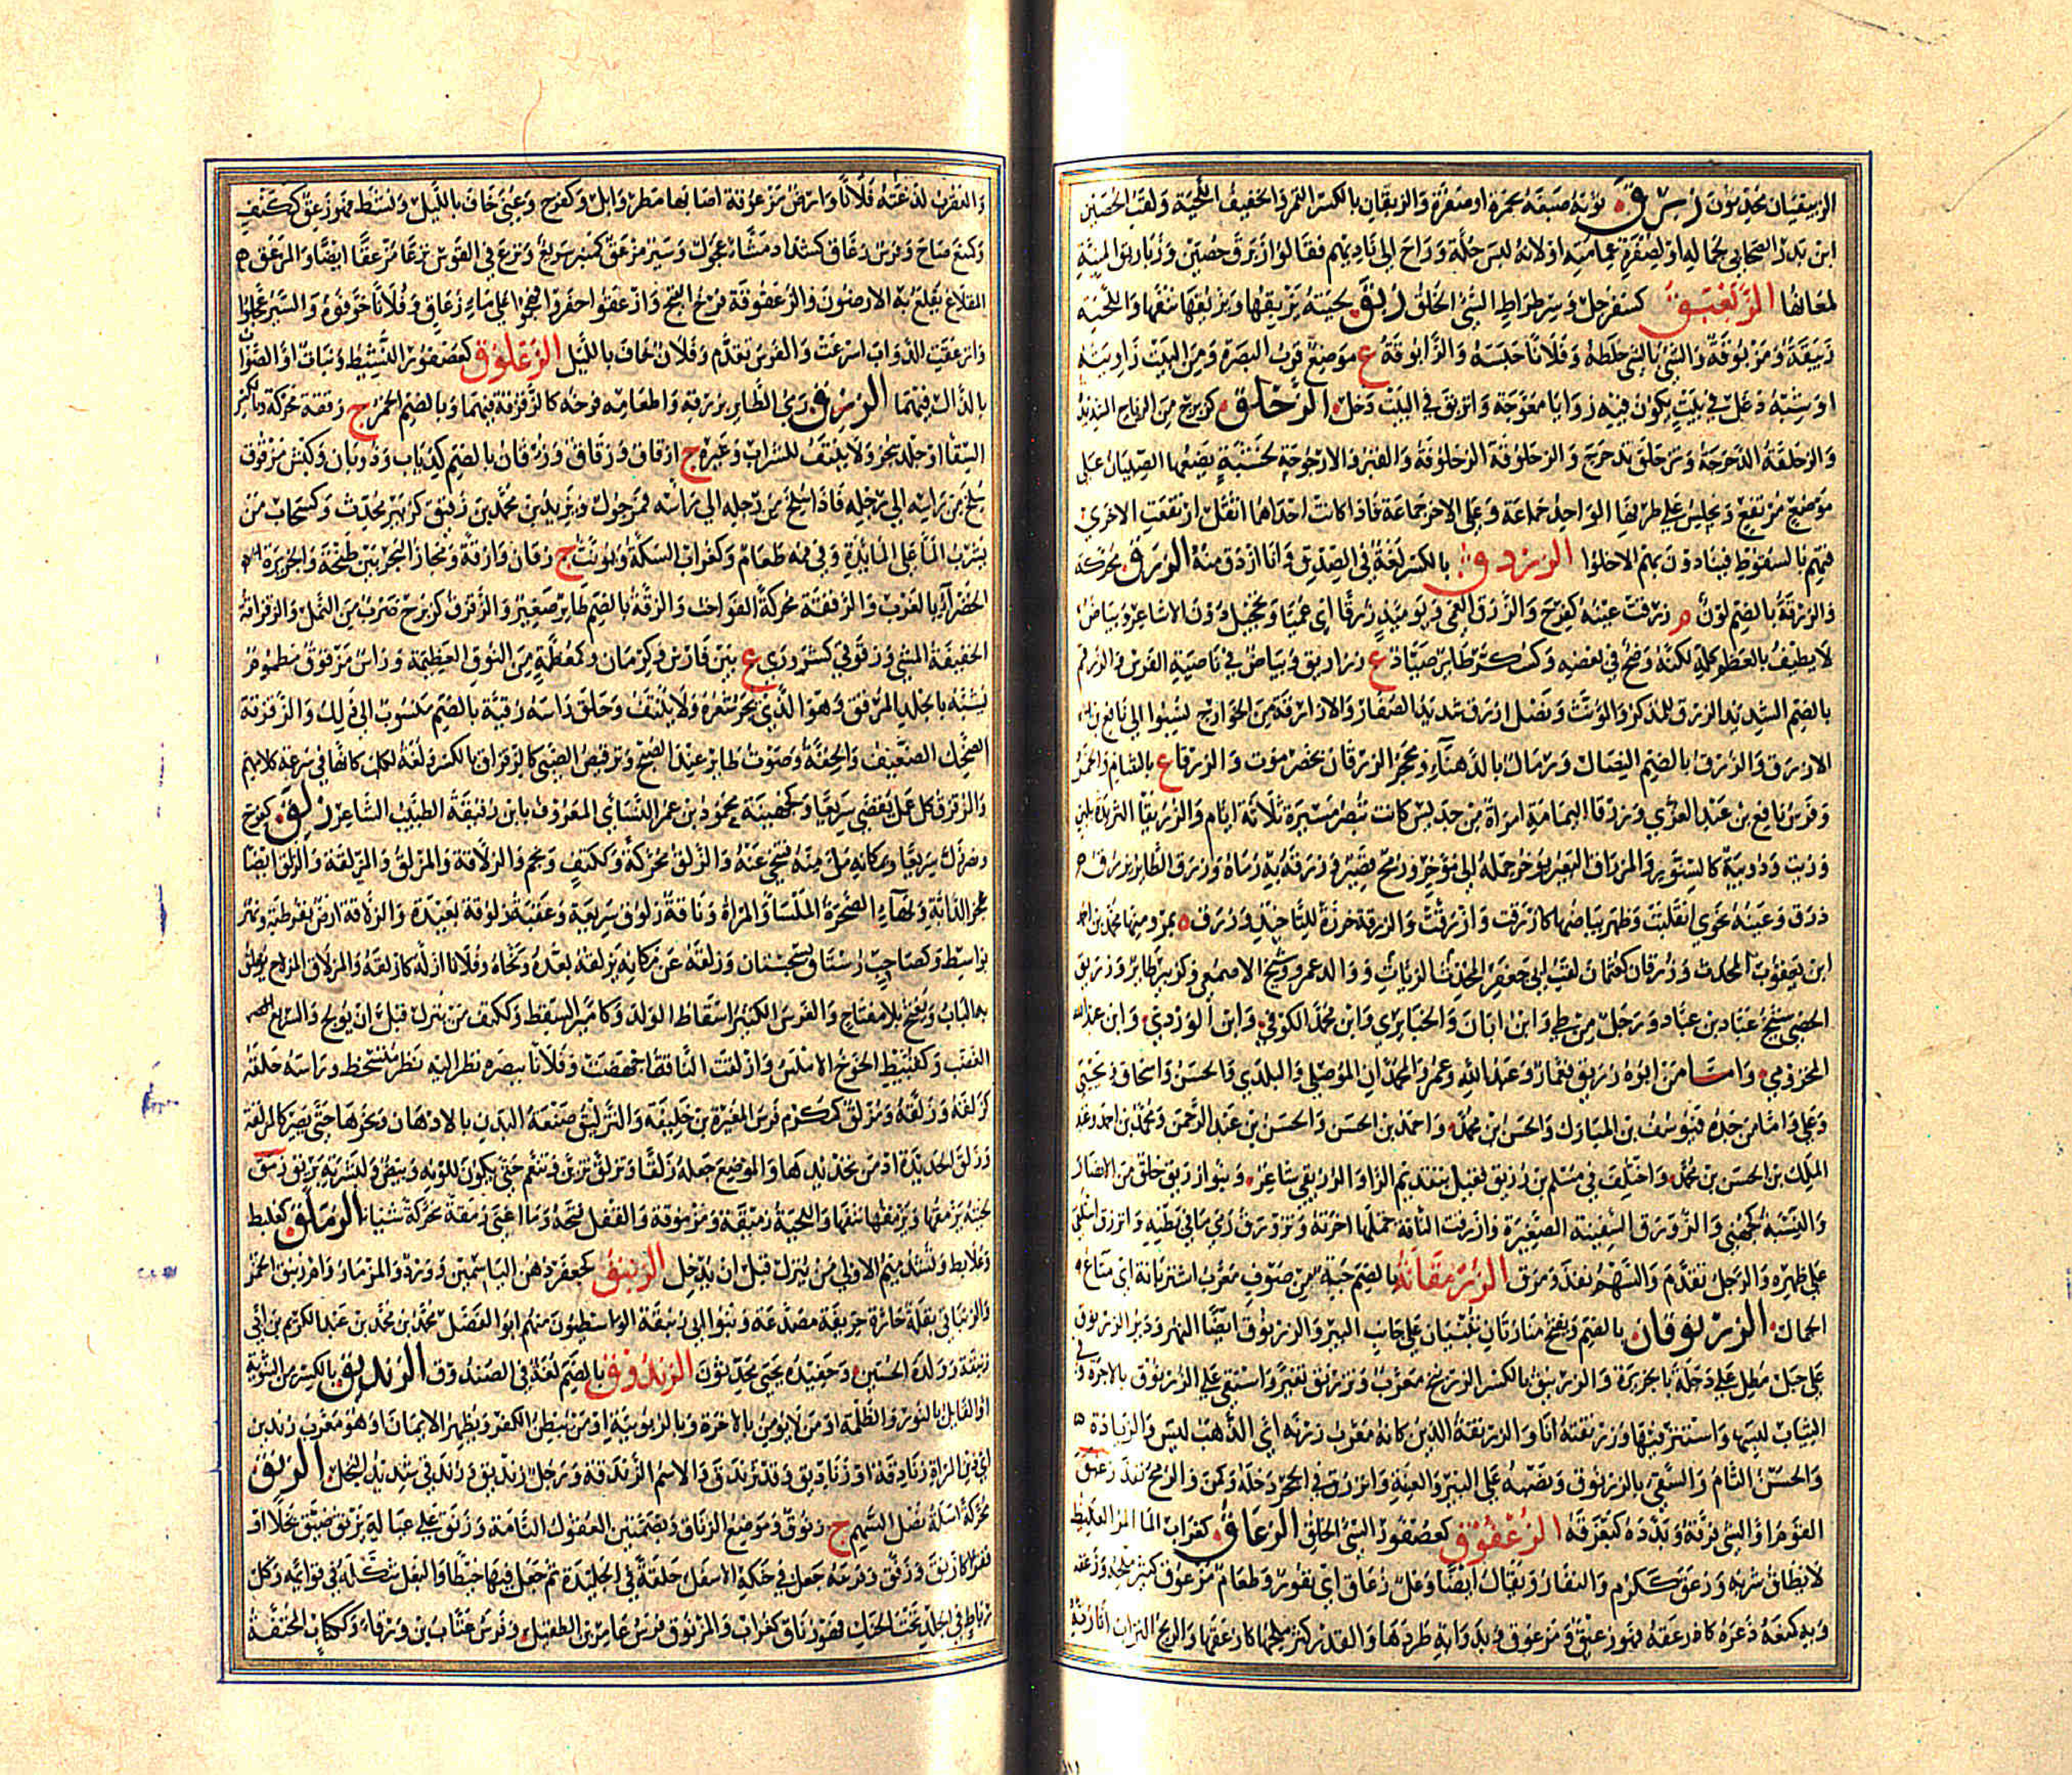 الزبيقيان محدثون زبرق ثوبه صبغه بحمرة او صفرة والزبرقان بالكسر القمر والخفيف اللحية ولقب الحصين
ابن بدر الصحابي لجماله او لصفرة عمامته او لانه لبس حلة وراح الى ناديهم فقالوا زبرق حصين وزباريق المنية
لمعانها الزبعبق كسفرجل وسرطراط السيئ الخلق زبق لحيته يزبقها ويزبقها نتفها واللحية
زبيقة ومزبوقة والشيء بالشيء خلطه وفلانا حبسه والزابوقة ع موضع قرب البصرة ومن البيت زاويته
او شبه دغل في بيت يكون فيه زوايا معوجة وانزبق في البيت دخل الزحلق كزبرج من الرياح الشديدة
والزحلقة الدحرجة وتزحلق تدحرج والزحلوقة الزحلوفة والقبر والارجوحة لخشبة يضعها الصبيان على
موضع مرتفع ويجلس على طرفها الواحد جماعة وعلى الاخر جماعة فاذا كانت احداهما اثقل ارتفعت الاخرى
فتهم بالسقوط فينادون بهم الا خلوا الزردق بالكسر لغة في الصدق وانا ازدق منه الزرق محركة
والزرقة بالضم لون م زرقت عينه كفرح والزرق العمى ويومئذ زرقا اي عميا وتحجيل دون الاشاعر وبياض
لا يطيف بالعظم كله لكنه وضح في بعضه وكسكر طائر صياد ع زراريق وبياض في ناصية الفرس والزرقم
بالضم الشديد الزرق للمذكر والمونث ونصل ازرق شديد الصفاء والازارقة من الخوارج نسبوا الى نافع بن
الازرق والزرق بالضم النصال ورمال بالدهناء ومحجر الزرقان بحضرموت والزرقاء ع بالشام والخمر
وفرس نافع بن عبد العزى وزرقا اليمامة امراة من جديس كانت تبصر مسيرة ثلاثة ايام والزريقا الثريدة بلبن
وزيت ودويبة كالسنور والمزراق البعير يوخر حمله الى موخر ورمح قصير وزرقه به رماه وزرق الطائر يزرق
ذرق وعينه نحوي انقلبت وظهر بياضها كازرقت وازرقت والزرقة خرزة للتاخيذ وزرق ه بمرو منها محمد بن احمد
ابن يعقوب المحدث وزرقان كعثمان لقب ابي جعفر المحدث الزيات ووالد عمرو شيخ الاصمعي وكزبير طائر وزريق
الخصي شيخ عباد بن عباد ورجل من طي وابن ابان والخبايري وابن محمد الكوفي وابن الورد وابن عبد الله
المخزومي واما من ابوه زريق فعمار وعبد الله وعمرو المحمدان الموصلي والبلدي والحسن واسحاق ويحيى
وعلي واما من جده فيوسف بن المبارك والحسن ابن محمد واحمد بن الحسن والحسن بن عبد الرحمن ومحمد بن احمد وعبد
الملك بن الحسن بن محمد واختلف في مسلم بن زريق فقيل بتقديم الزا والزريقي شاعر وبنو زريق خلق من الانصار
والنسبة كجهني والزورق السفينة الصغيرة وازرقت الناقة حملها اخرته وتزورق رمى ما في بطنه وانزرق استلقى
على ظهره والرجل تقدم والسهم نفذ ومرق الزرمانقة بالضم جبة من صوف معرب اشتربانه اي متاع
الجمال الزرنوقان بالضم ويفتح منارتان تبنيان على جانب البئر والزرنوق ايضا النهر ودير الزرنوق
على جبل مطل على دجلة بالجزيرة والزرنيق بالكسر الزرنيخ معرب وتزرنق تعين واستقى على الزرنوق بالاجرة وفي
الثياب لبسها واستتر فيها وزرنقته انا والزرنقة الدين كانه معرب زرنه اي الذهب ليس والزيادة
والحسن التام والسقي بالزرنوق ونصبه على البئر والعينة وانزرق في الجحر دخله وكمن والرمح نفذ زعبق
القوم والشيء فرقه وبدده كبعزقه الزعفوق كعصفور السيئ الخلق الزعاق كغراب الما المر الغليظ
لا يطاق شربه وزعق ككرم والنفار ويقال ايضا وعل زعاق اي نفور وطعام مزعوق كثير ملحه وزعقه
وبه كمنعه ذعره كازعقه فهو زعيق ومزعوق وبدوابه طردها والقدر كثر ملحها كازعقها والريح التراب اثارته
والعقرب لدغته فلانا وارض مزعوقة اصابها مطر وابل وكفرح وعني خاف بالليل ونشط فهو زعق ككتف
وكمنع صاح وفرس زعاق كشداد مشاء عجول وسير مزعق كمنبر سريع ونزع في القوس نزعا مزعقا ايضا والمزعق م
المقلاع يقلع به الارضون والزعقوقة فرخ القبج وازعقوا حفروا فهجموا على ماء زعاق وفلانا خوفوه والسير عجلوا
وانزعقت الدواب اسرعت والفرس تقدم وفلان خاف بالليل الزعلوق كعصفور النشيط ونبات او الصواب
بالذال فيهما الزق رمي الطائر بزرقه واطعامه فرخه كالزقزقة فيهما وبالضم الخمر ج زققة محركة وبالكسر
السقا او جلد يجز ولا ينتف للشراب وغيره ج ازقاق وزقاق وزقان بالضم كذياب وذوبان وكبش مزقوق
سلخ من راسه الى رجله فاذا سلخ من رجله الى راسه فمرجول ويزيد بن محمد بن زقيق كزبير محدث وكسحاب من
يشرب الما على المايدة وفي فمه طعام وكغراب السكة ويونث ج زقاق وازقة ومجاز البحر بين طنجة والجزيرة
الخضراء بالغرب والزققة محركة الفواخت والزقة بالضم طاير صغير والزقزق كزبرج ضرب من النمل والزقزاقة
الخفيفة المشي وزقوقى كشرورى ع بين فارس وكرمان وكمعظمة من النوق العظيمة وراس مزقوق مطموم
يشبه بالجلد المزقق وهو الذي يجز شعره ولا ينتف وحلق راسه زقية بالضم منسوب الى ذلك والزقزقة
الضحك الضعيف والخفة وصوت طاير عند الصبح وترقيص الصبي كالزقزاق بالكسر ولغة لكلب كانها في سرعة كلامهم
والزقزق كل عمل يقضى سريعا وكجهينة محمود بن عمر النسائي المعروف بابن زقيقة الطبيب الشاعر زلق كفرح
ونصر زل سريعا وبمكانه مل منه فتنحى عنه والزلق محركة وككتف ونجم والزلاقة والمزلق والمزلقة والزلق ايضا
عجز الدابة وبهاء الصخرة الملسا والمراة وناقة زلوق سريعة وعقبة زلوقة بعيدة والزلاقة ارض بقرطبة ونهر
بواسط وكصاحب رستاق بسجستان وزلقه عن مكانه يزلقه بعده ونحاه وفلانا ازله كازلقه والمزلاق المزلاج يغلق
به الباب ويفتح بلا مفتاح والفرس الكثير اسقاط الولد وكامير السقط وككتف من ينزل قبل ان يولج والسريع
الغضب وكقبيط الخوخ الاملس وازلقت الناقة اجهضت وفلانا ببصره نظر اليه نظر متسخط وراسه حلقه
كزلقه وزلقه ومزلق ككرم فرس المغيرة بن خليفة والتزليق صنعة البدن بالادهان ونحوها حتى يصير كالمزلقة
وزلق الحديدة ادمن تحديدها والموضع جعله زلقا وتزلق تزين وتنعم حتى يكون للونه وبيص ولبشرته بريق زمق
لحيته يزمقها ويزمقها نتفها واللحية زميقة ومزموقة والقفل فتحه وما اغنى زمقة محركة شيئا الزملق كعلبط
وعلابط وتشدد ميم الاولى من ينزل قبل ان يدخل الزنبق كجعفر دهن الياسمين وورد والمزمار وام زنبق الخمر
والزنباق بقلة حارة حريفة مصدعة وبنو ابي زنبقة الواسطيون منهم ابو الفضل محمد بن محمد بن عبد الكريم بن ابي
زنبقة وولده الحسين وحفيده يحيى محدثون الزندوق بالضم لغة في الصندوق الزنديق بالكسر من الثنوية
او القايل بالنور والظلمة او من لا يومن بالاخرة وبالربوبية او من يبطن الكفر ويظهر الايمان او هو معرب زن دين
اي دين المراة زنادقة او زناديق وقد تزندق والاسم الزندقة ورجل زنديق وزندقي شديد البخل الزنق
محركة اسلة نصل السهم ج زنوق وموضع الزناق وبضمتين العقول التامة وزنق على عياله يزنق ضيق بخلا او
فقرا كازنق وزنق وفرسه جعل في حنكه الاسفل حلقة في الجليدة ثم جعل فيها خيطا والبغل شكله في قوائمه وكل
رباط في الجلد تحت الحنك فهو زناق كغراب والمزنوق فرس عامر بن الطفيل وفرس عتاب بن ورقاء وككتاب المخنقة